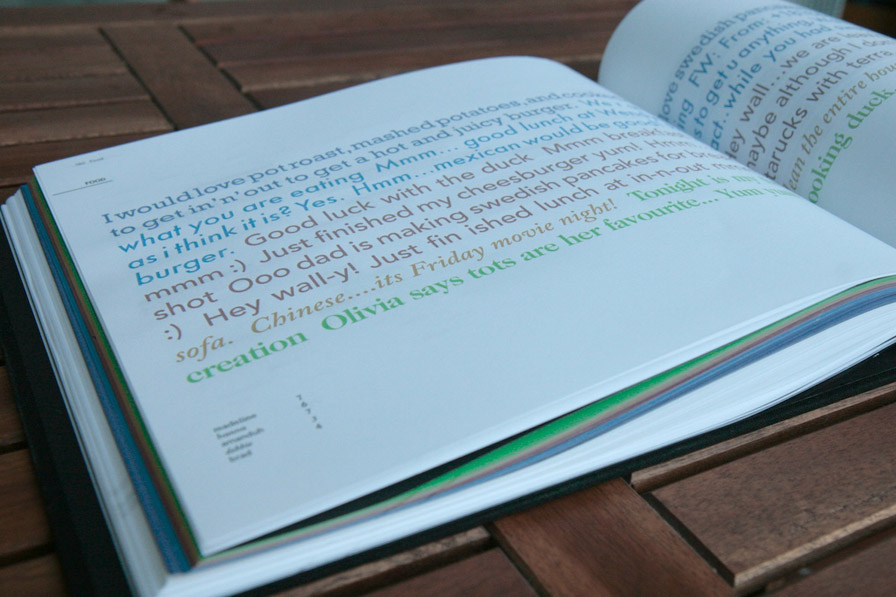 FOOD
I would love pot roast, mashed potatoes, and
to get in 'n' out to get a hot and juicy burger. We
what you are eating Mmm... good lunch at
as i think it is? Yes. Hmm...mexican would be
burger. Good luck with the duck Mmm
mmm :) Just finished my cheesburger yum!
shot Ooo dad is making swedish pancakes for
:) Hey wall-y! Just fin ished lunch at in-n-out
sofa. Chinese....its Friday movie night! Tonight is
creation Olivia says tots are her favourite... Yum
madeline 7
hanna 6
amandah 7
debbie
brad
swedish
FW: From:
to get u anything
act. while you
ey wall ...we are
maybe although I
tarucks with terra
an the entire
ooking duck